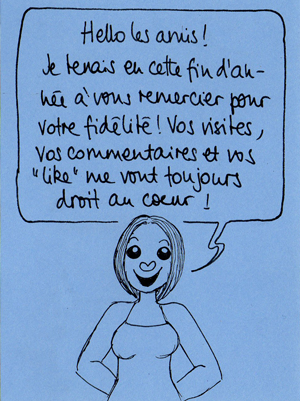 Hello les amis!
Je tenais en cette fin d'an-
née à vous remercier pour
votre fidélité! Vos visites,
vos commentaires et vos
"like" me vont toujours
droit au coeur!